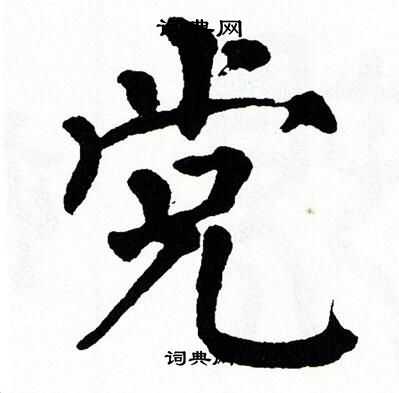 词典网
党
词典网